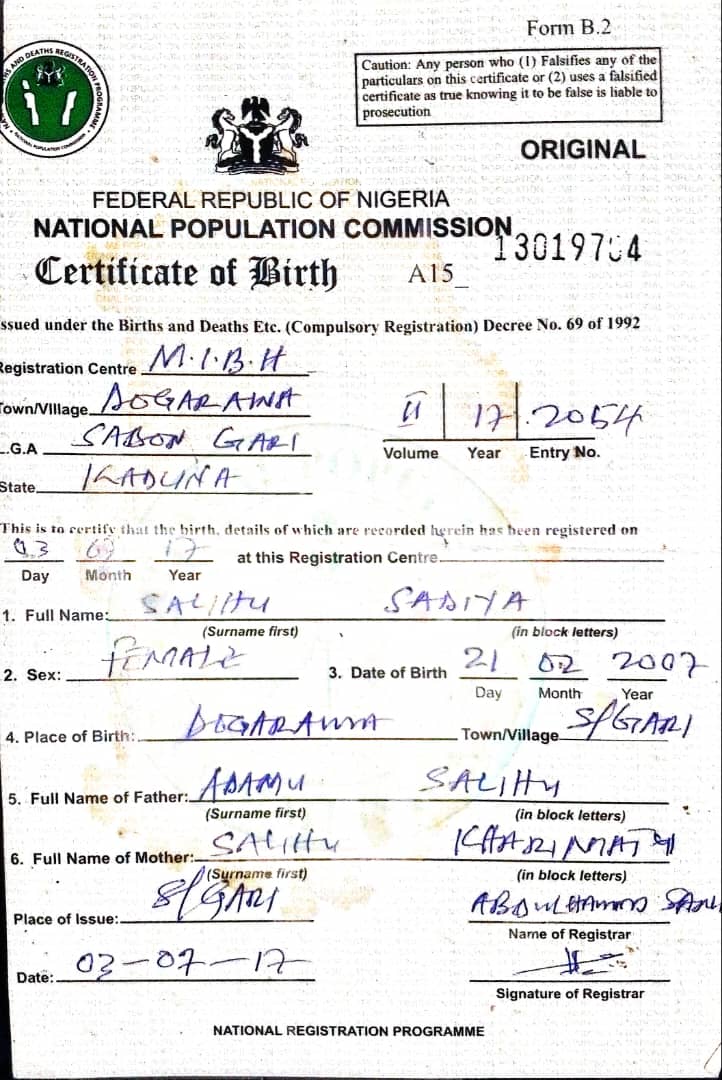 Form B.2
Caution: Any person who (1) Falsifies any of the
particulars on this certificate or (2) uses a falsified
certificate as true knowing it to be false is liable to
prosecution
ORIGINAL
FEDERAL REPUBLIC OF NIGERIA
NATIONAL POPULATION COMMISSION
Certificate of Birth A15_
ssued under the Births and Deaths Etc. (Compulsory Registration) Decree No. 69 of 1992
Registration Centre M.I.B.H
Town/Village DOGARAWA
L.G.A SABON GARI
State KADUNA
II 17 2054
Volume Year Entry No.
This is to certify that the birth, details of which are recorded herein has been registered on
03 17 at this Registration Centre
Day Month Year
1. Full Name: SALIHU SADIYA
(Surname first) (in block letters)
2. Sex: FEMALE 3. Date of Birth 21 02 2007
Day Month Year
4. Place of Birth: DOGARAWA Town/Village S/GARI
5. Full Name of Father: ADAMU SALIHU
(Surname first) (in block letters)
6. Full Name of Mother: SALIHU
(Surname first) (in block letters)
Place of Issue: S/GARI
Name of Registrar
Date: 03-07-17
Signature of Registrar
NATIONAL REGISTRATION PROGRAMME